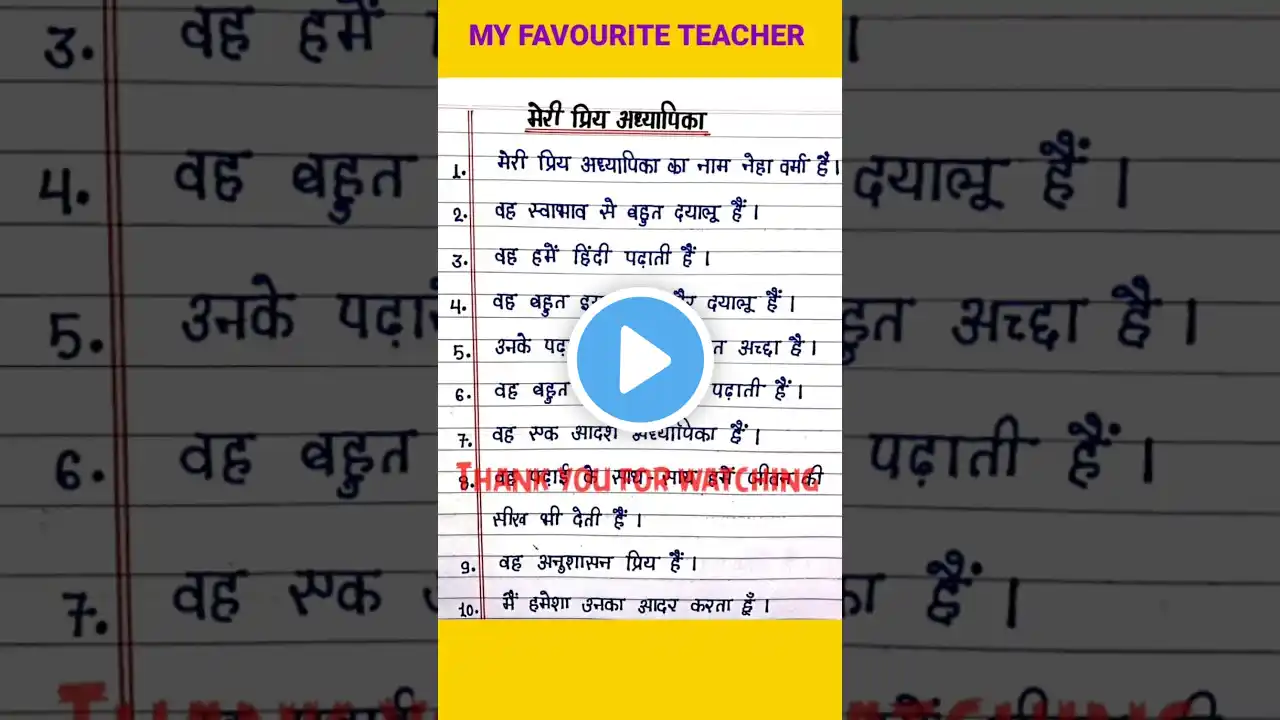 MY FAVOURITE TEACHER
मेरी प्रिय अध्यापिका
1. मेरी प्रिय अध्यापिका का नाम नेहा वर्मा हैं।
2. वह स्वाभाव से बहुत दयालू हैं।
3. वह हमें हिंदी पढ़ाती हैं।
4. वह बहुत दयालू हैं।
5. उनके अच्छा है।
6. वह बहुत पढ़ाती हैं।
7. वह एक आदर्श अध्यापिका हैं।
8. वह पढ़ाई के साथ-साथ हमें जीवन की
THANK YOU FOR WATCHING
सीख भी देती हैं।
9. वह अनुशासन प्रिय हैं।
10. मैं हमेशा उनका आदर करता हूँ।